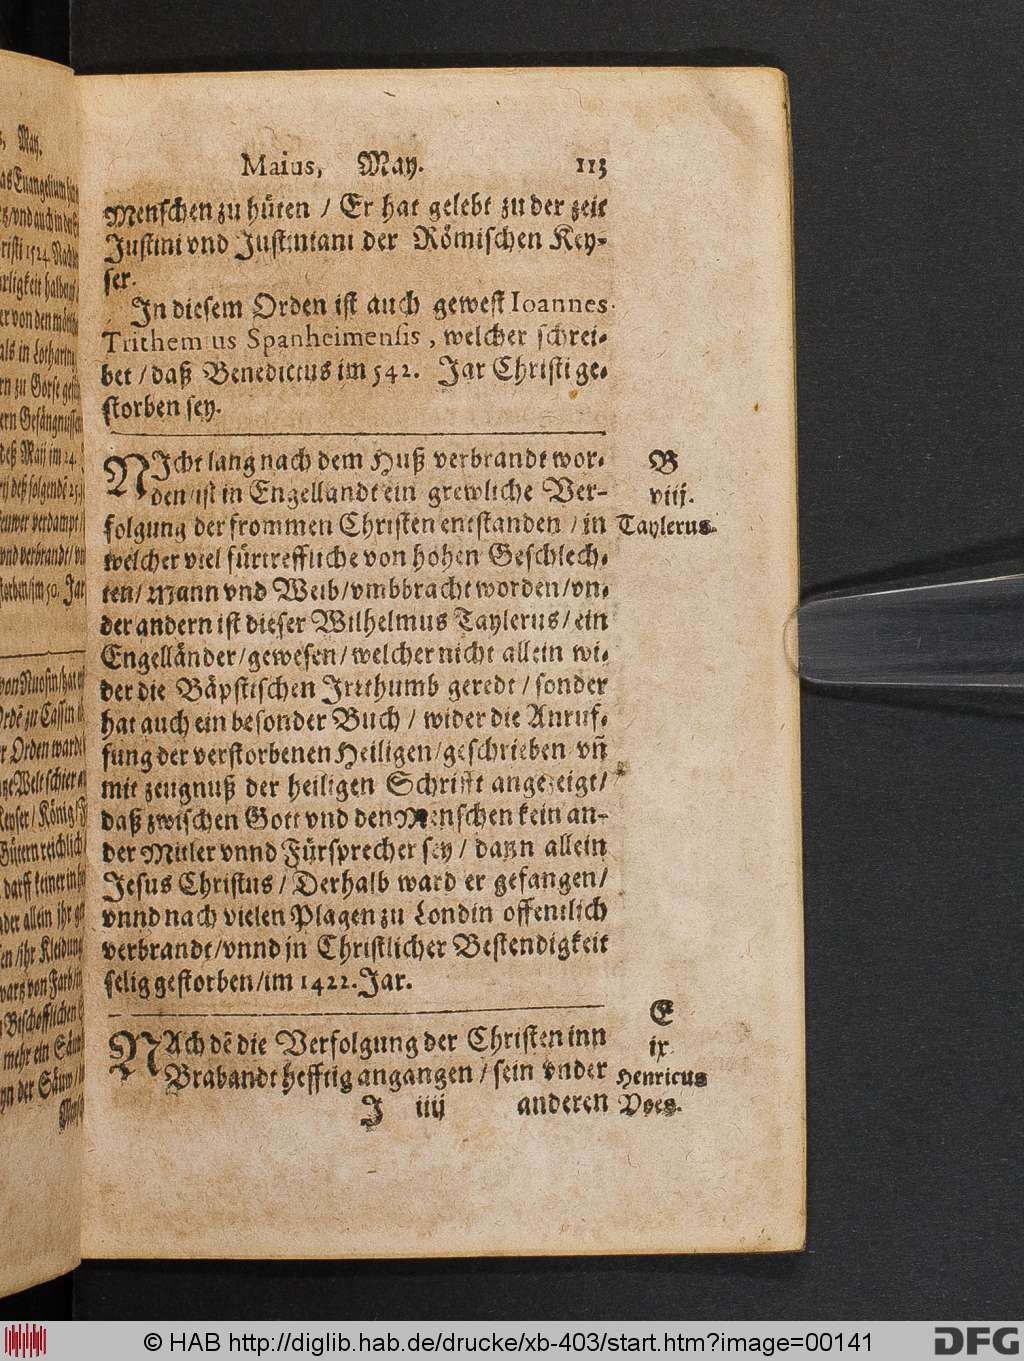 Maius, May. 113
Menschen zu hüten / Er hat gelebt zu der zeit
Justini vnd Justiniani der Römischen Key-
ser.
In diesem Orden ist auch gewest Ioannes
Trithemius Spanheimensis, welcher schrei-
bet / daß Benedictus im 542. Jar Christi ge-
storben sey.
NIcht lang nach dem Huß verbrandt wor-
den / ist in Engellandt ein grewliche Ver-
folgung der frommen Christen entstanden / in
welcher viel fürtreffliche von hohen Geschlech-
ten / Mann vnd Weib / vmbbracht worden / vn-
der andern ist dieser Wilhelmus Taylerus / ein
Engelländer / gewesen / welcher nicht allein wi-
der die Bäpstischen Irrthumb geredt / sonder
hat auch ein besonder Buch / wider die Anruf-
fung der verstorbenen Heiligen / geschrieben vñ
mit zeugnuß der heiligen Schrifft angezeigt /
daß zwischen Gott vnd den Menschen kein an-
der Mitler vnnd Fürsprecher sey / dann allein
Jesus Christus / Derhalb ward er gefangen /
vnnd nach vielen Plagen zu Londin offentlich
verbrandt / vnnd in Christlicher Bestendigkeit
selig gestorben / im 1422. Jar.
B
viij.
Taylerus.
NAch dē die Verfolgung der Christen inn
Brabandt hefftig angangen / sein vnder
J iiij anderen
E
ix.
Henricus
Voes.
© HAB http://diglib.hab.de/drucke/xb-403/start.htm?image=00141
DFG